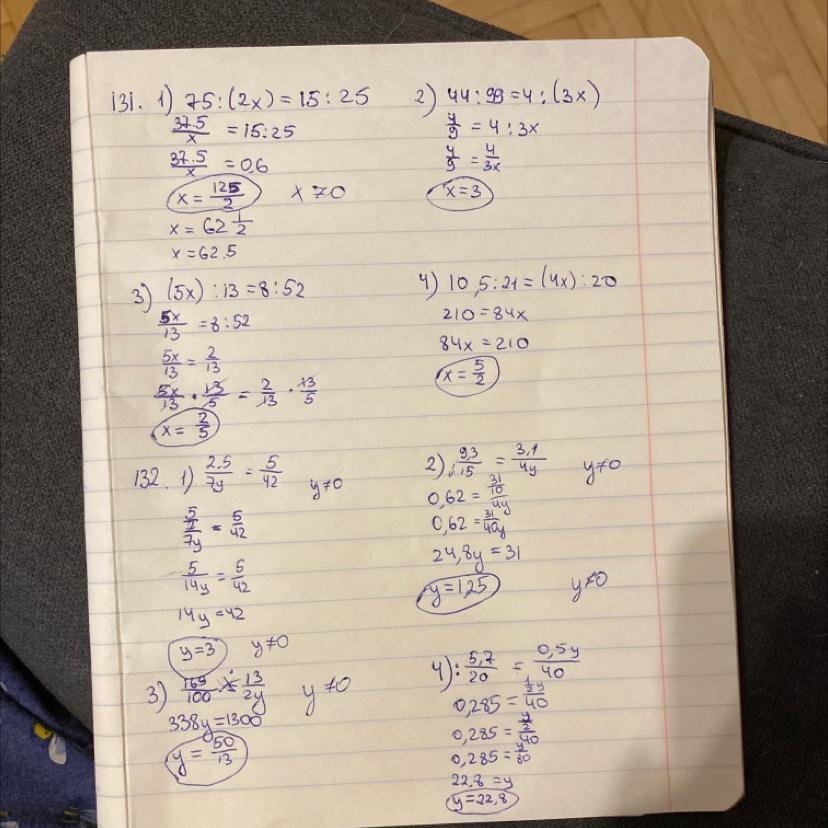 131. 1) 75:(2x) = 15:25
37.5/x = 15:25
37.5/x = 0,6
x = 125/2 x ≠ 0
x = 62 1/2
x = 62.5
2) 44:99 = 4:(3x)
4/9 = 4:3x
4/9 = 4/3x
x = 3
3) (5x):13 = 8:52
5x/13 = 8:52
5x/13 = 2/13
5x/13 · 13/5 = 2/13 · 13/5
x = 2/5
4) 10,5:21 = (4x):20
210 = 84x
84x = 210
x = 5/2
132. 1) 2.5/7y = 5/42 y≠0
5/2/7y = 5/42
5/14y = 5/42
14y = 42
y = 3 y≠0
2) 9,3/15 = 3,1/4y y≠0
0,62 = 31/10/4y
0,62 = 31/40y
24,8y = 31
y = 1,25 y≠0
3) 169/100 = 13/2y y≠0
338y = 1300
y = 50/13
4) : 5,7/20 = 0,5y/40
0,285 = 1/2y/40
0,285 = y/2/40
0,285 = y/80
22,8 = y
y = 22,8